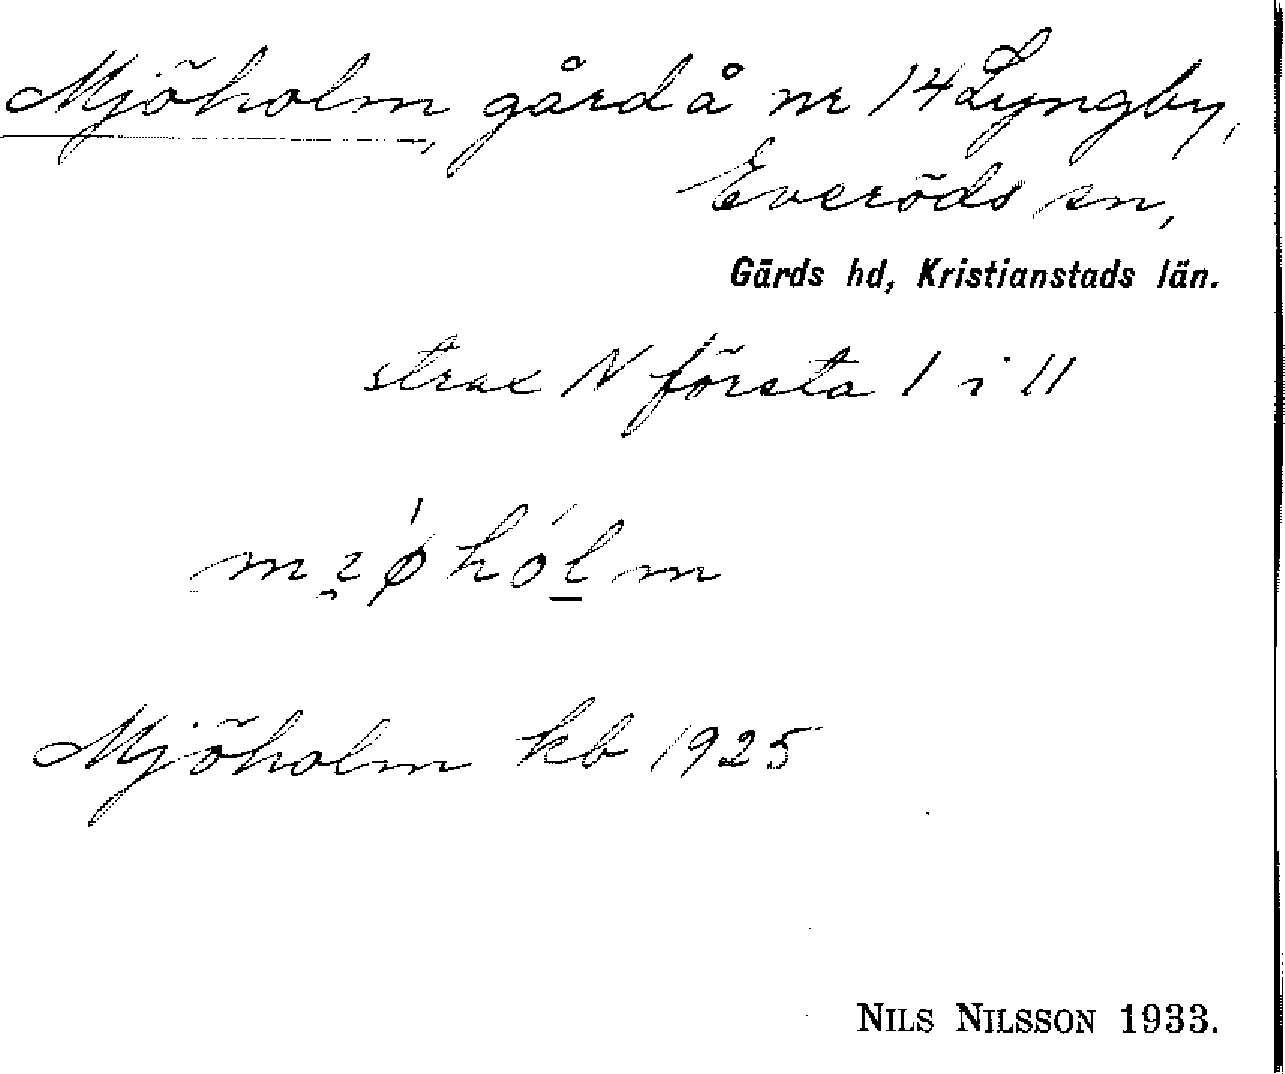 Mjöholm, gård å nr 14 Lyngby,
Everöds sn,
Gärds hd, Kristianstads län.
strax N första l i ll
Mjöholm kb 1925
NILS NILSSON 1933.